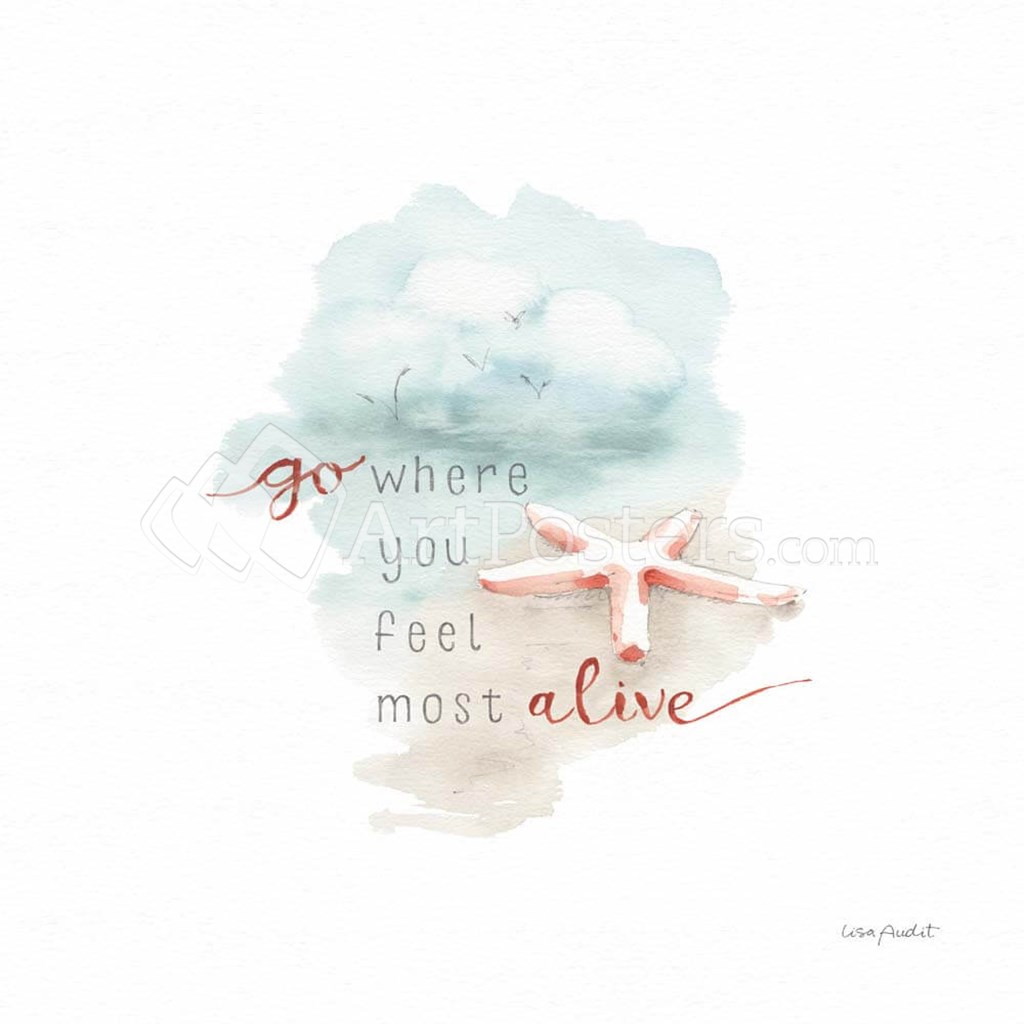 go where
you
ArtPosters.com
feel
most alive
Lisa Audit